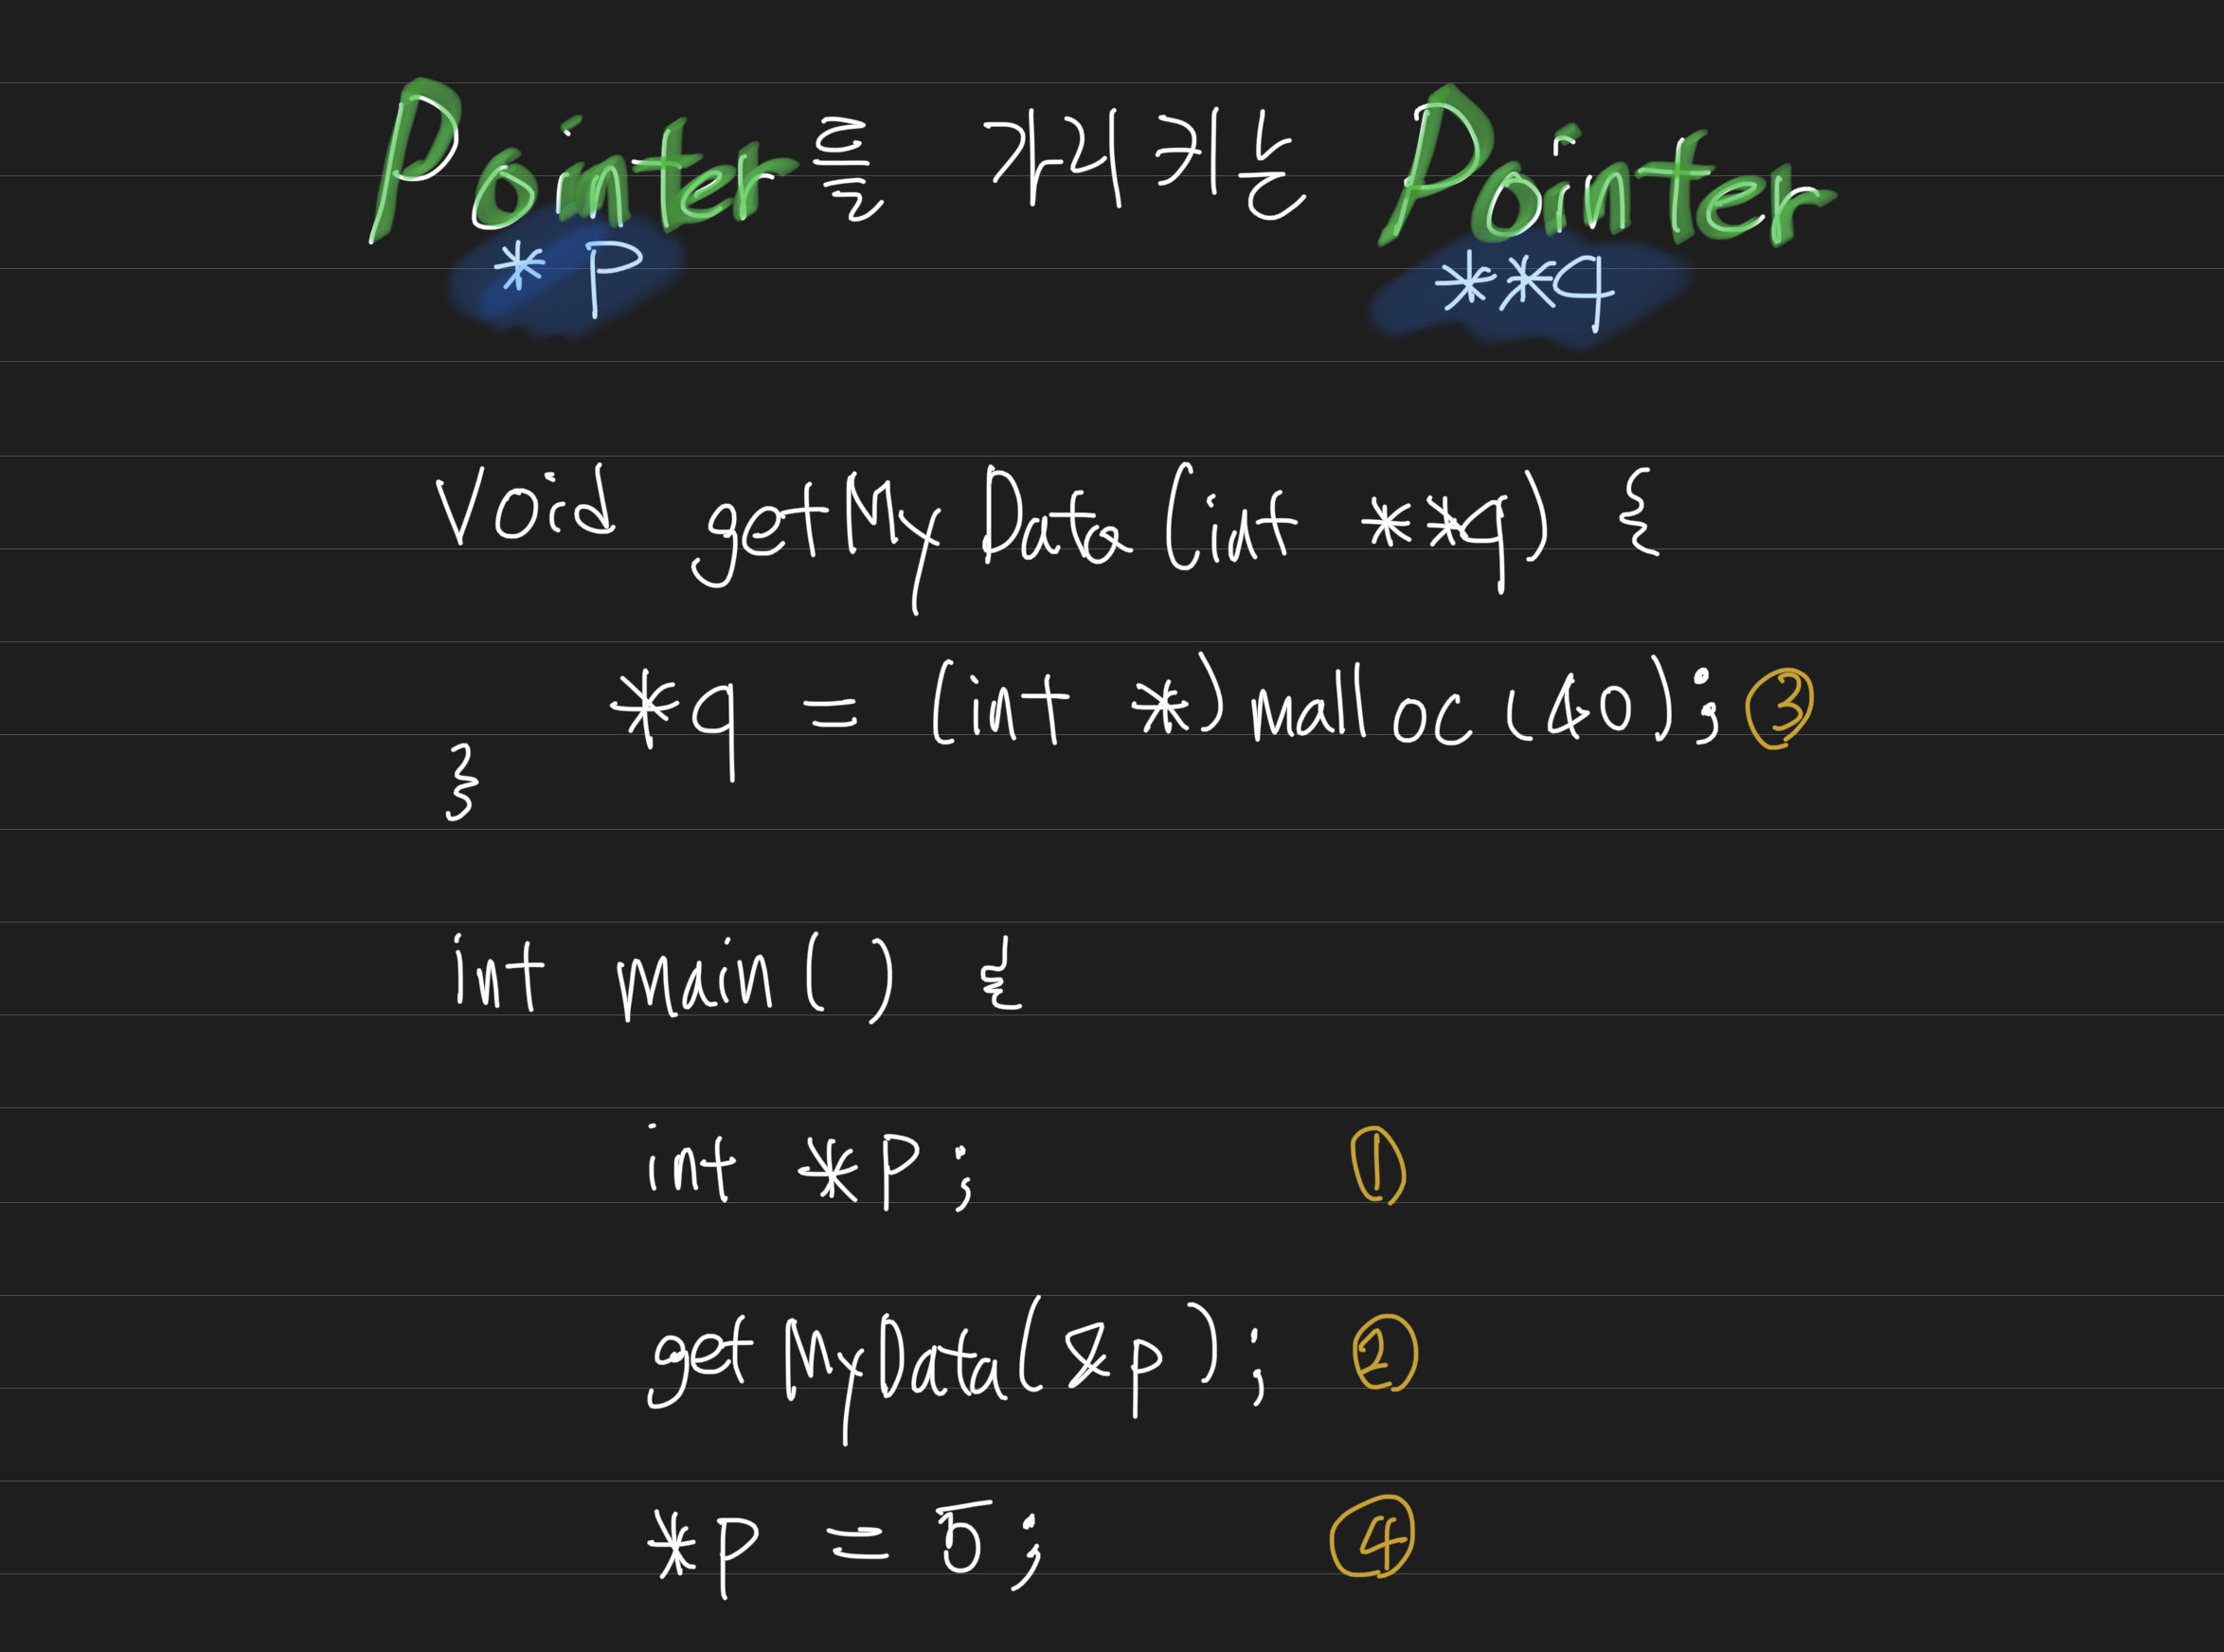 Pointer를 가리키는 Pointer
*p **q
Void getMyData(int **q) {
*q = (int *)malloc(40); ③
}
int main() {
int *p; ①
getMyData(&p); ②
*p = 5; ④